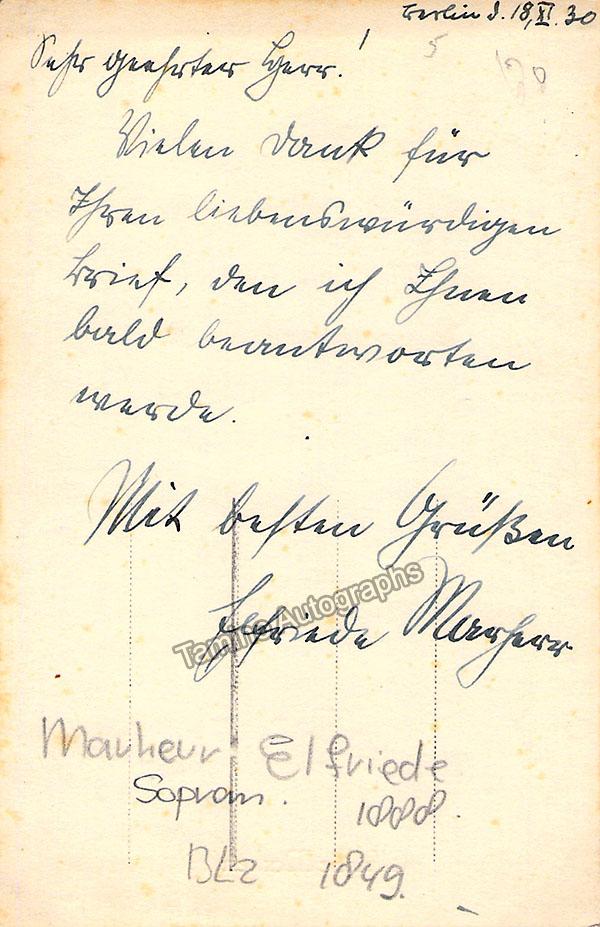 Berlin d. 18, XI. 30
5
Sehr geehrter Herr!
Vielen Dank für
Ihren liebenswürdigen
Brief, den ich Ihnen
bald beantworten
werde.
Mit besten Grüßen
Elfriede Marherr
Tamino Autographs
Marherr Elfriede
Sopran. 1888.
BLZ 1849.